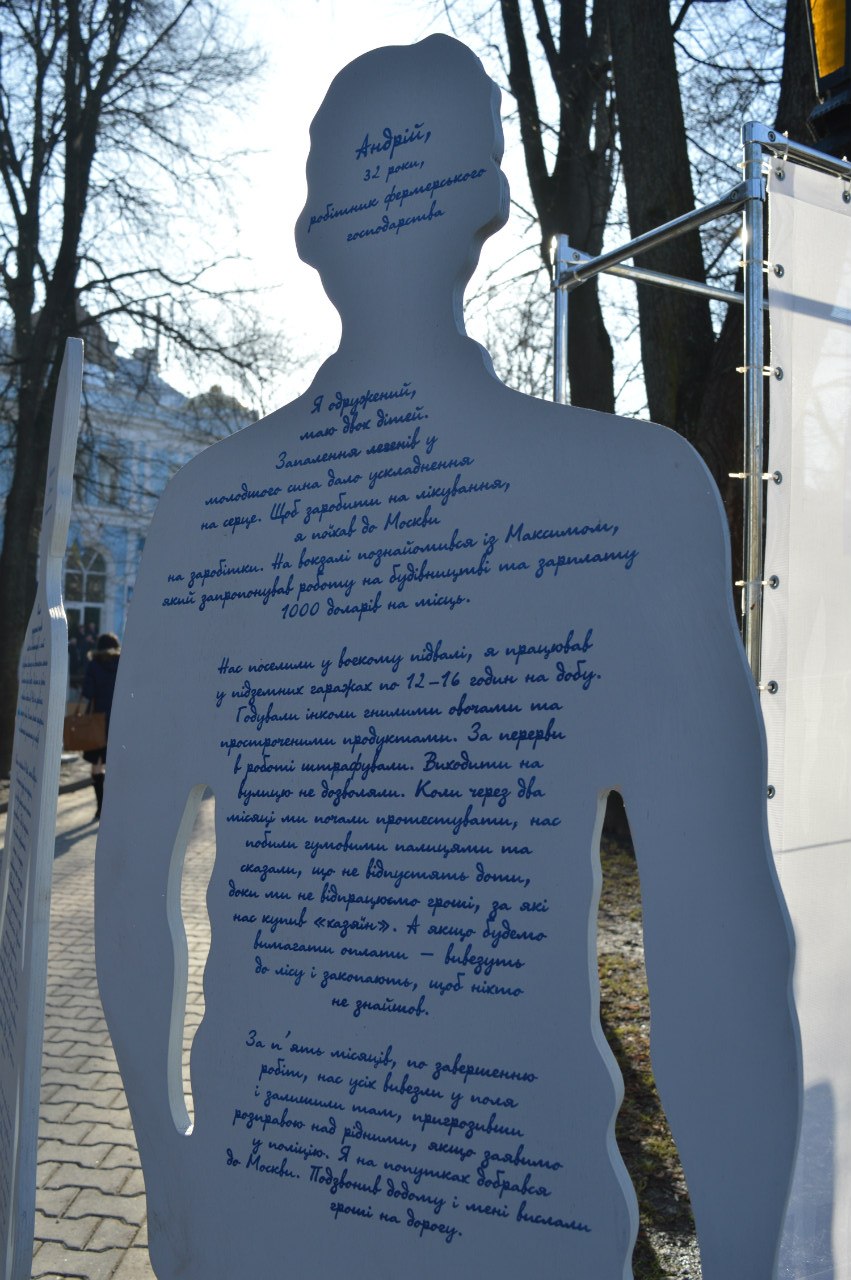 Андрій,
32 роки,
робітник фермерського
господарства
Я одружений,
маю двох дітей.
Запалення легенів у
молодшого сина дало ускладнення
на серце. Щоб заробити на лікування,
я поїхав до Москви
на заробітки. На вокзалі познайомився із Максимом,
який запропонував роботу на будівництві та зарплату
1000 доларів на місяць.
Нас поселили у вогкому підвалі, я працював
у підземних гаражах по 12–16 годин на добу.
Годували інколи гнилими овочами та
простроченими продуктами. За перерви
в роботі штрафували. Виходити на
вулицю не дозволяли. Коли через два
місяці ми почали протестувати, нас
побили гумовими палицями та
сказали, що не відпустять доти,
доки ми не відпрацюємо гроші, за які
нас купив «хазяїн». А якщо будемо
вимагати оплати — вивезуть
до лісу і закопають, щоб ніхто
не знайшов.
За п'ять місяців, по завершенню
робіт, нас усіх вивезли у поля
і залишили там, пригрозивши
розправою над рідними, якщо заявимо
у поліцію. Я на попутках добрався
до Москви. Подзвонив додому і мені вислали
гроші на дорогу.